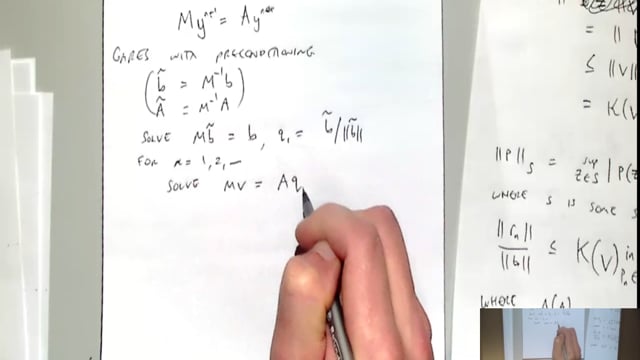 My = Ay
GMRES WITH PRECONDITIONING
( b̃ = M⁻¹b
Ã = M⁻¹A )
SOLVE Mb̃ = b, q₁ = b̃/||b̃||
FOR n = 1, 2, —
SOLVE Mv = Aq
= ||
≤ ||V||
= K(V)
||P||_S = sup_{z∈S} |P(z
WHERE S IS SOME S
||rₙ||/||b|| ≤ K(V) in
Pₙ
WHERE Λ(A)